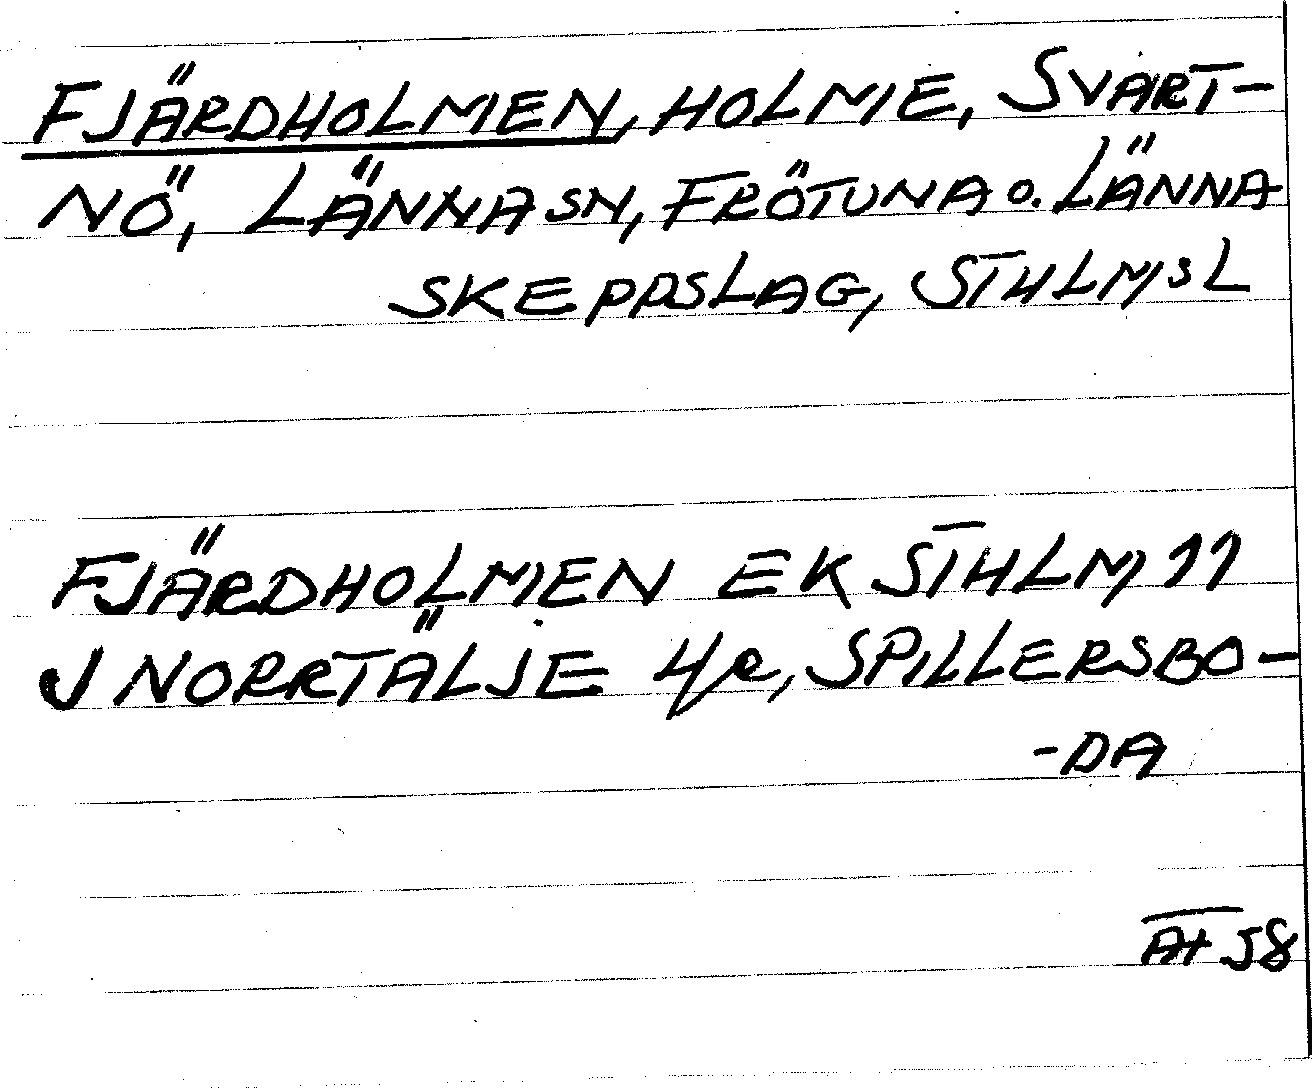 FJÄRDHOLMEN, HOLME, SVART-
NÖ, LÄNNA SN, FRÖTUNA o. LÄNNA
SKEPPSLAG, STHLMS L
FJÄRDHOLMEN EK STHLM 11
J NORRTÄLJE 4/2, SPILLERSBO-
-DA